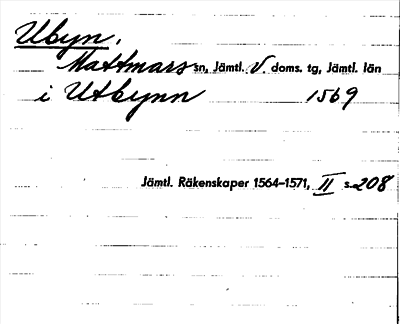 Ubyn.
Mattmars sn, Jämtl. V. doms. tg, Jämtl. län
i Utbynn 1569
Jämtl. Räkenskaper 1564–1571, II s. 208